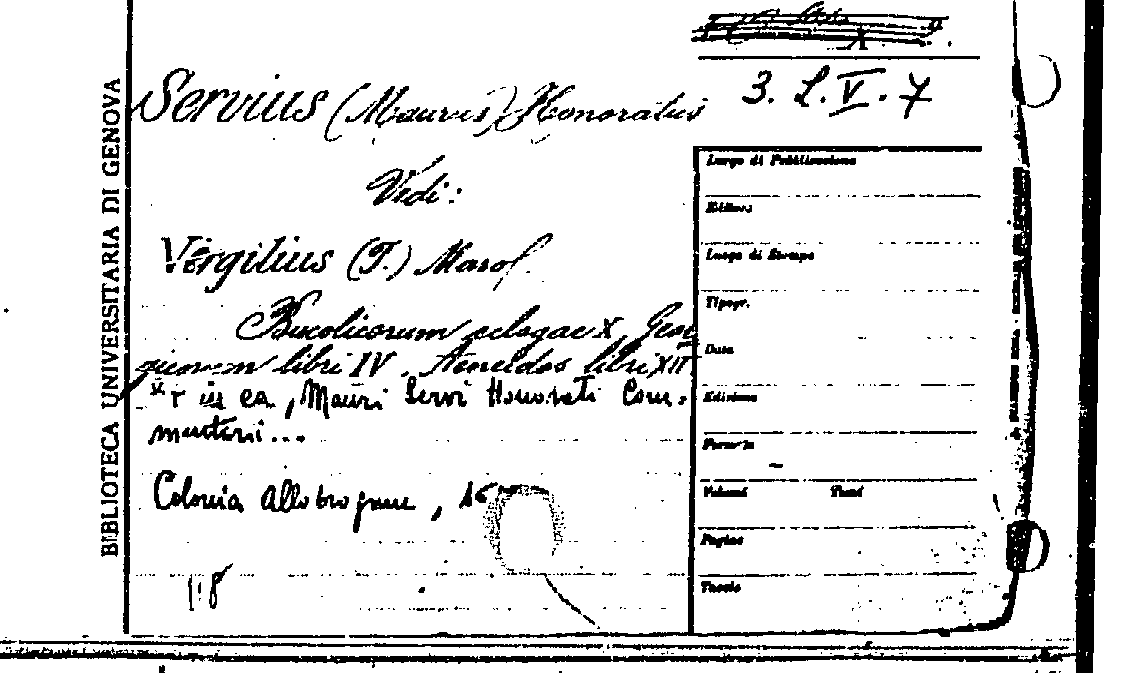 BIBLIOTECA UNIVERSITARIA DI GENOVA
3. L. V. 7
Servius (Maurus) Honoratus
Vedi:
Virgilius (P.) Maro
Bucolicorum eclogae X, Geor
gicorum libri IV. Aeneidos libri XII
et in ea, Mauri Servi Honorati Com-
mentarii...
Colonia Allobrogum, 16
118
Luogo di Pubblicazione
Editore
Luogo di Stampa
Tipogr.
Data
Edizione
Formato
Volumi
Pagine
Tavole